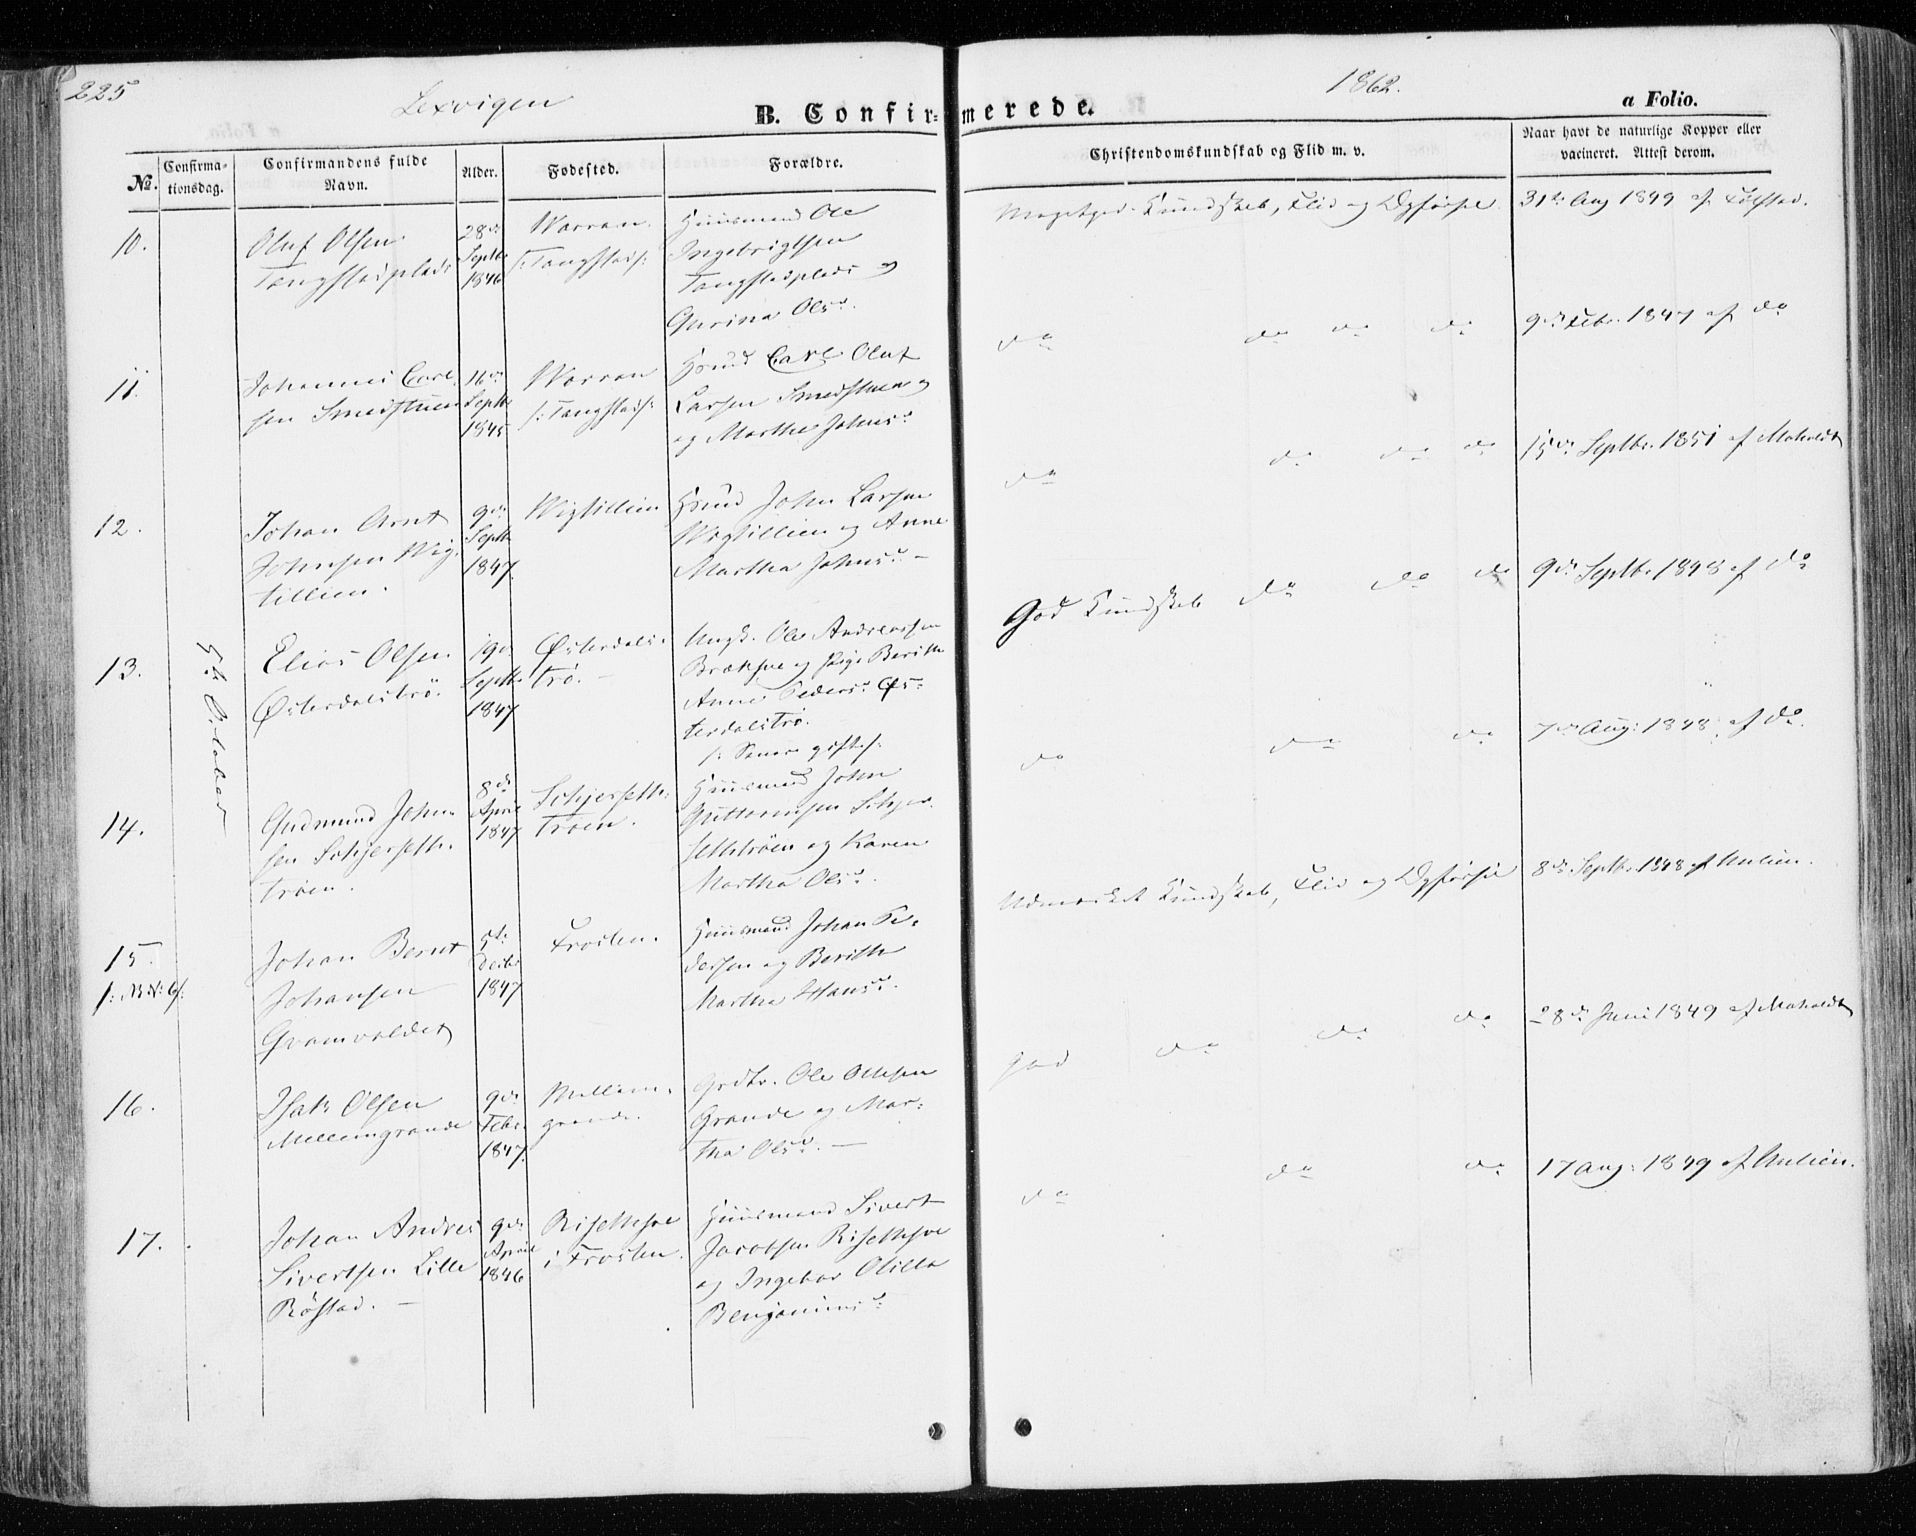 225
Lexvigen
1862.
B. Confir=merede.
a Folio.
No.
Confirma=
tionsdag.
Confirmandens fulde
Navn.
Alder.
Fødested.
Forældre.
Christendomskundskab og Flid m. v.
Naar havt de naturlige Kopper eller
vacineret. Attest derom.
5te October
10.
Oluf Olsen
Tangstadplads
28de
Septbr
1846
Worran
/:Tangstad/:
Huusmand Ole
Ingebrigtsen
Tangstadplads og
Gurina Olsd.
Megetgod Kundskab, Flid og Opførsel
31te Aug 1849 af
11.
Johannes Carl
sen Smedstuen
16de
Septbr
1845
Worran
/:Tangstad/:
Hsmd Carl Oluf
Larsen Smedstuen
og Martha Johnsd.
do do do do
9de Febr. 1847 af do
12.
Johan Arnt
Johnsen Wig
tillien.
9de
Septbr
1847.
Wigtillien
Hsmd John Larsen
Wigtillien og Anne
Martha Johnsd. —
do do do do
15de Septbr. 1851 af Moholdt
13.
Elias Olsen
Østerdalströ.
19de
Septbr
1847
Østerdals-
trö. —
Ungk. Ole Andreassen
og Pige Berith
Anne Pedersd. Øs=
terdalströ.
/: Senere gifte/:
God Kundskab do do do
9de Septbr. 1848 af do
14.
Gudmund John-
sen Schjerseth-
tröen.
8de
April
1847
Schjerseth-
tröen.
Huusmand John
Guttormsen Schjer-
sethtröen og Karen
Martha Olsd.
do do do
7de Aug: 1848 af do.
15.
/: No: 6/:
Johan Bernt
Johansen
Gramvoldet
5te
Decbr
1847
Frosten.
Huusmand Johan Pe-
dersen og Berith
Martha Hansd.
Udmærket Kundskab, Flid og Opførsel
8de Septbr. 1848 af Aulien.
16.
Isak Olsen
Mellemgrande
9de
Febr.
1847.
Mellem-
grande.
Grdbr. Ole Ottesen
Grande og Mar=
tha Olsd. —
god do do do
28de Juni 1849 af Moholdt
17.
Johan Andreas
Sivertsen Lille
Röstad. —
9de
April
1846
i Frosten.
Huusmand Sivert
Jacobsen
og Ingebor Olilla
Benjaminsd:
do do do
17 Aug: 1849 af Aulien.